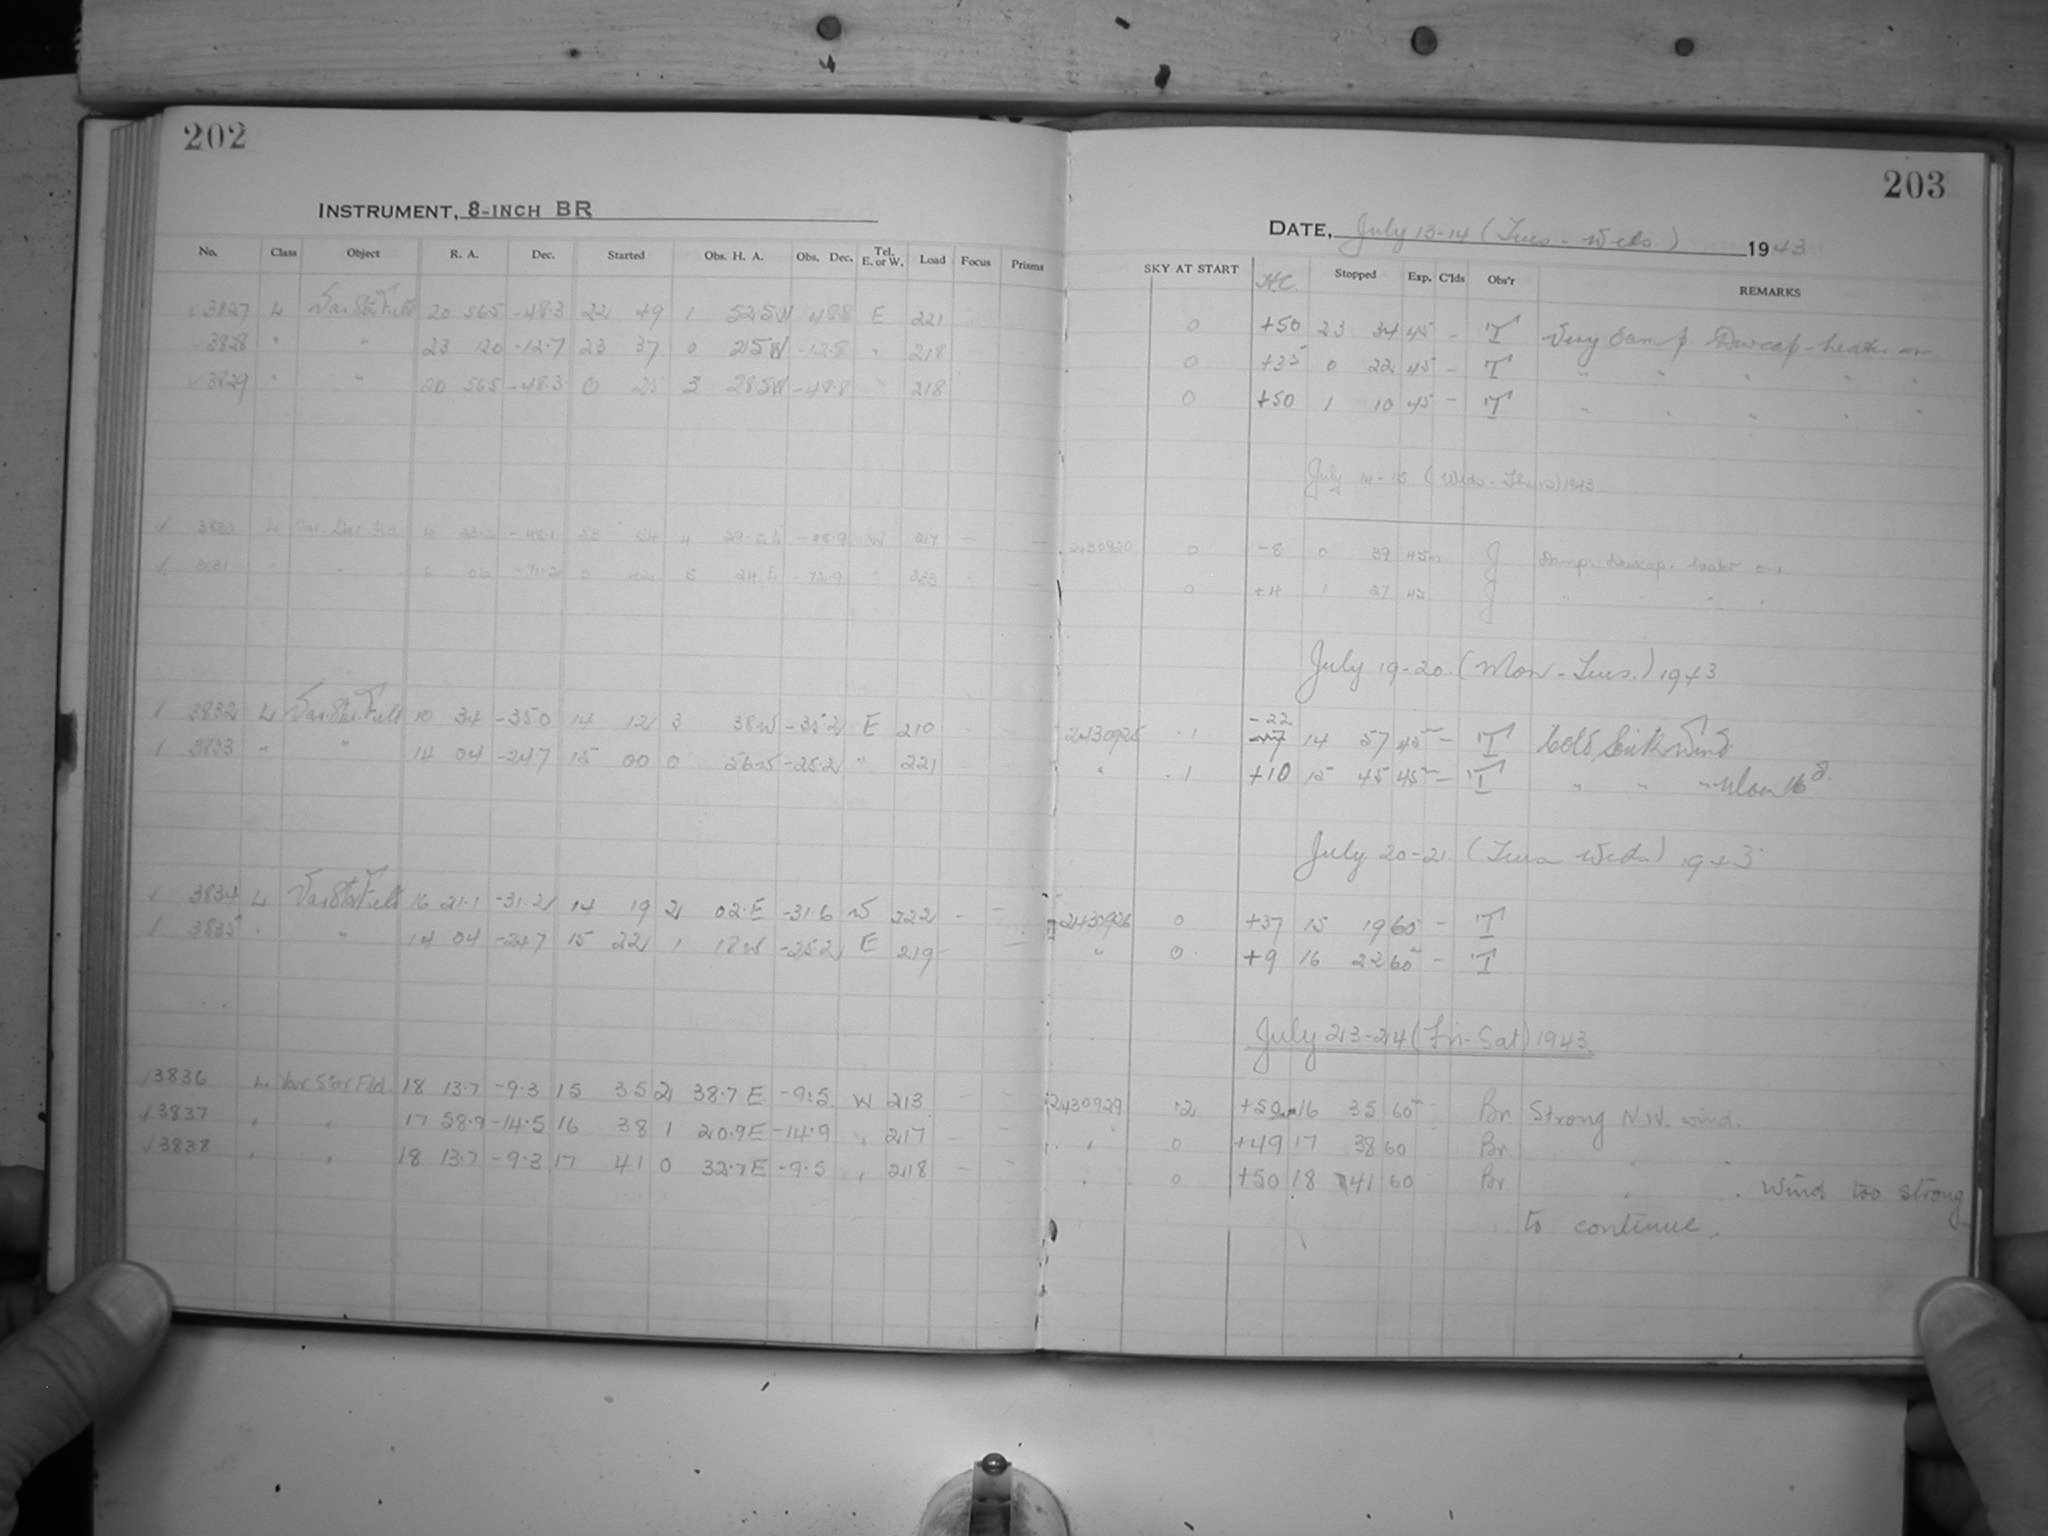 202
INSTRUMENT, 8-INCH BR
No. Class Object R. A. Dec. Started Obs. H. A. Obs. Dec. Tel. E. or W. Load Focus Prisms
3827 L Var Star Field 20 56.5 -48.3 22 49 1 52.5W -48.8 E 221
3828 " " 23 12.0 -12.7 23 37 0 25W -12.8 " 218
3829 " " 20 56.5 -48.3 0 25 3 28.5W -48.8 " 218
3830 L Var. Star Fld. -48.1 4 W 217 — —
3831 " " -71.2 0 42 5 24 E -72.9 "
3832 L Var. Star Field 10 34 -35.0 14 12 3 38W -35.2 E 210 - -
3833 " " 14 04 -24.7 15 00 0 56W -25.2 " 221 - -
3834 L Var Star Field 16 21.1 -31.2 14 19 2 02.E -31.6 W 222 - -
3835 " " 14 04 -24.7 15 22 1 18W -25.2 E 219 - —
3836 L Var. Star Fld. 18 13.7 -9.3 15 35 2 38.7 E -9.5 W 213 — —
3837 " " 17 58.9 -14.5 16 38 1 20.9E -14.9 " 217 — —
3838 " " 18 13.7 -9.3 17 41 0 32.7E -9.5 " 218 — —
203
DATE, July 13-14 (Tues - Weds.) 1943
SKY AT START H.C. Stopped Exp. C'lds Obs'r REMARKS
0 +50 23 34 45 - T Very damp Dewcap-heater on
0 +35 0 22 45 - T " " " " "
0 +50 1 10 45 - T " " " " "
July 14-15 (Weds. Thurs) 1943
2430920 0 -8 0 39 45m J Damp. Dewcap. heater on.
0 +4 1 27 45 J " " " "
July 19-20 (Mon - Tues.) 1943
2430925 .1 -22 14 57 45m - T Cold South Wind
" .1 +10 15 45 45m - T " " "
July 20-21 (Tues Weds) 1943
2430926 0 +37 15 19 60 - T
" 0 +9 16 22 60m - T
July 23-24 (Fri-Sat) 1943.
2430929 .2 +50 16 35 60m Br. Strong N.W. wind.
" 0 +49 17 38 60 Br. " "
" 0 +50 18 41 60 Br. " " wind too strong
to continue.